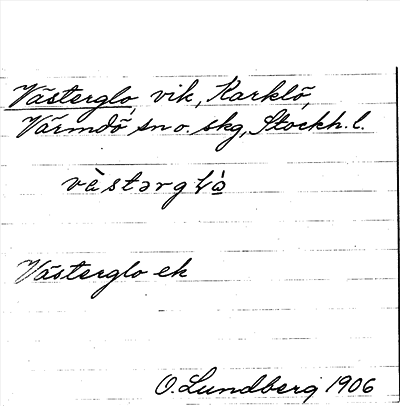 Västerglo, vik, Karklö,
Värmdö sn o. skg, Stockh. l.
vä̀stərgɫὰ
Västerglo ek
O. Lundberg 1906